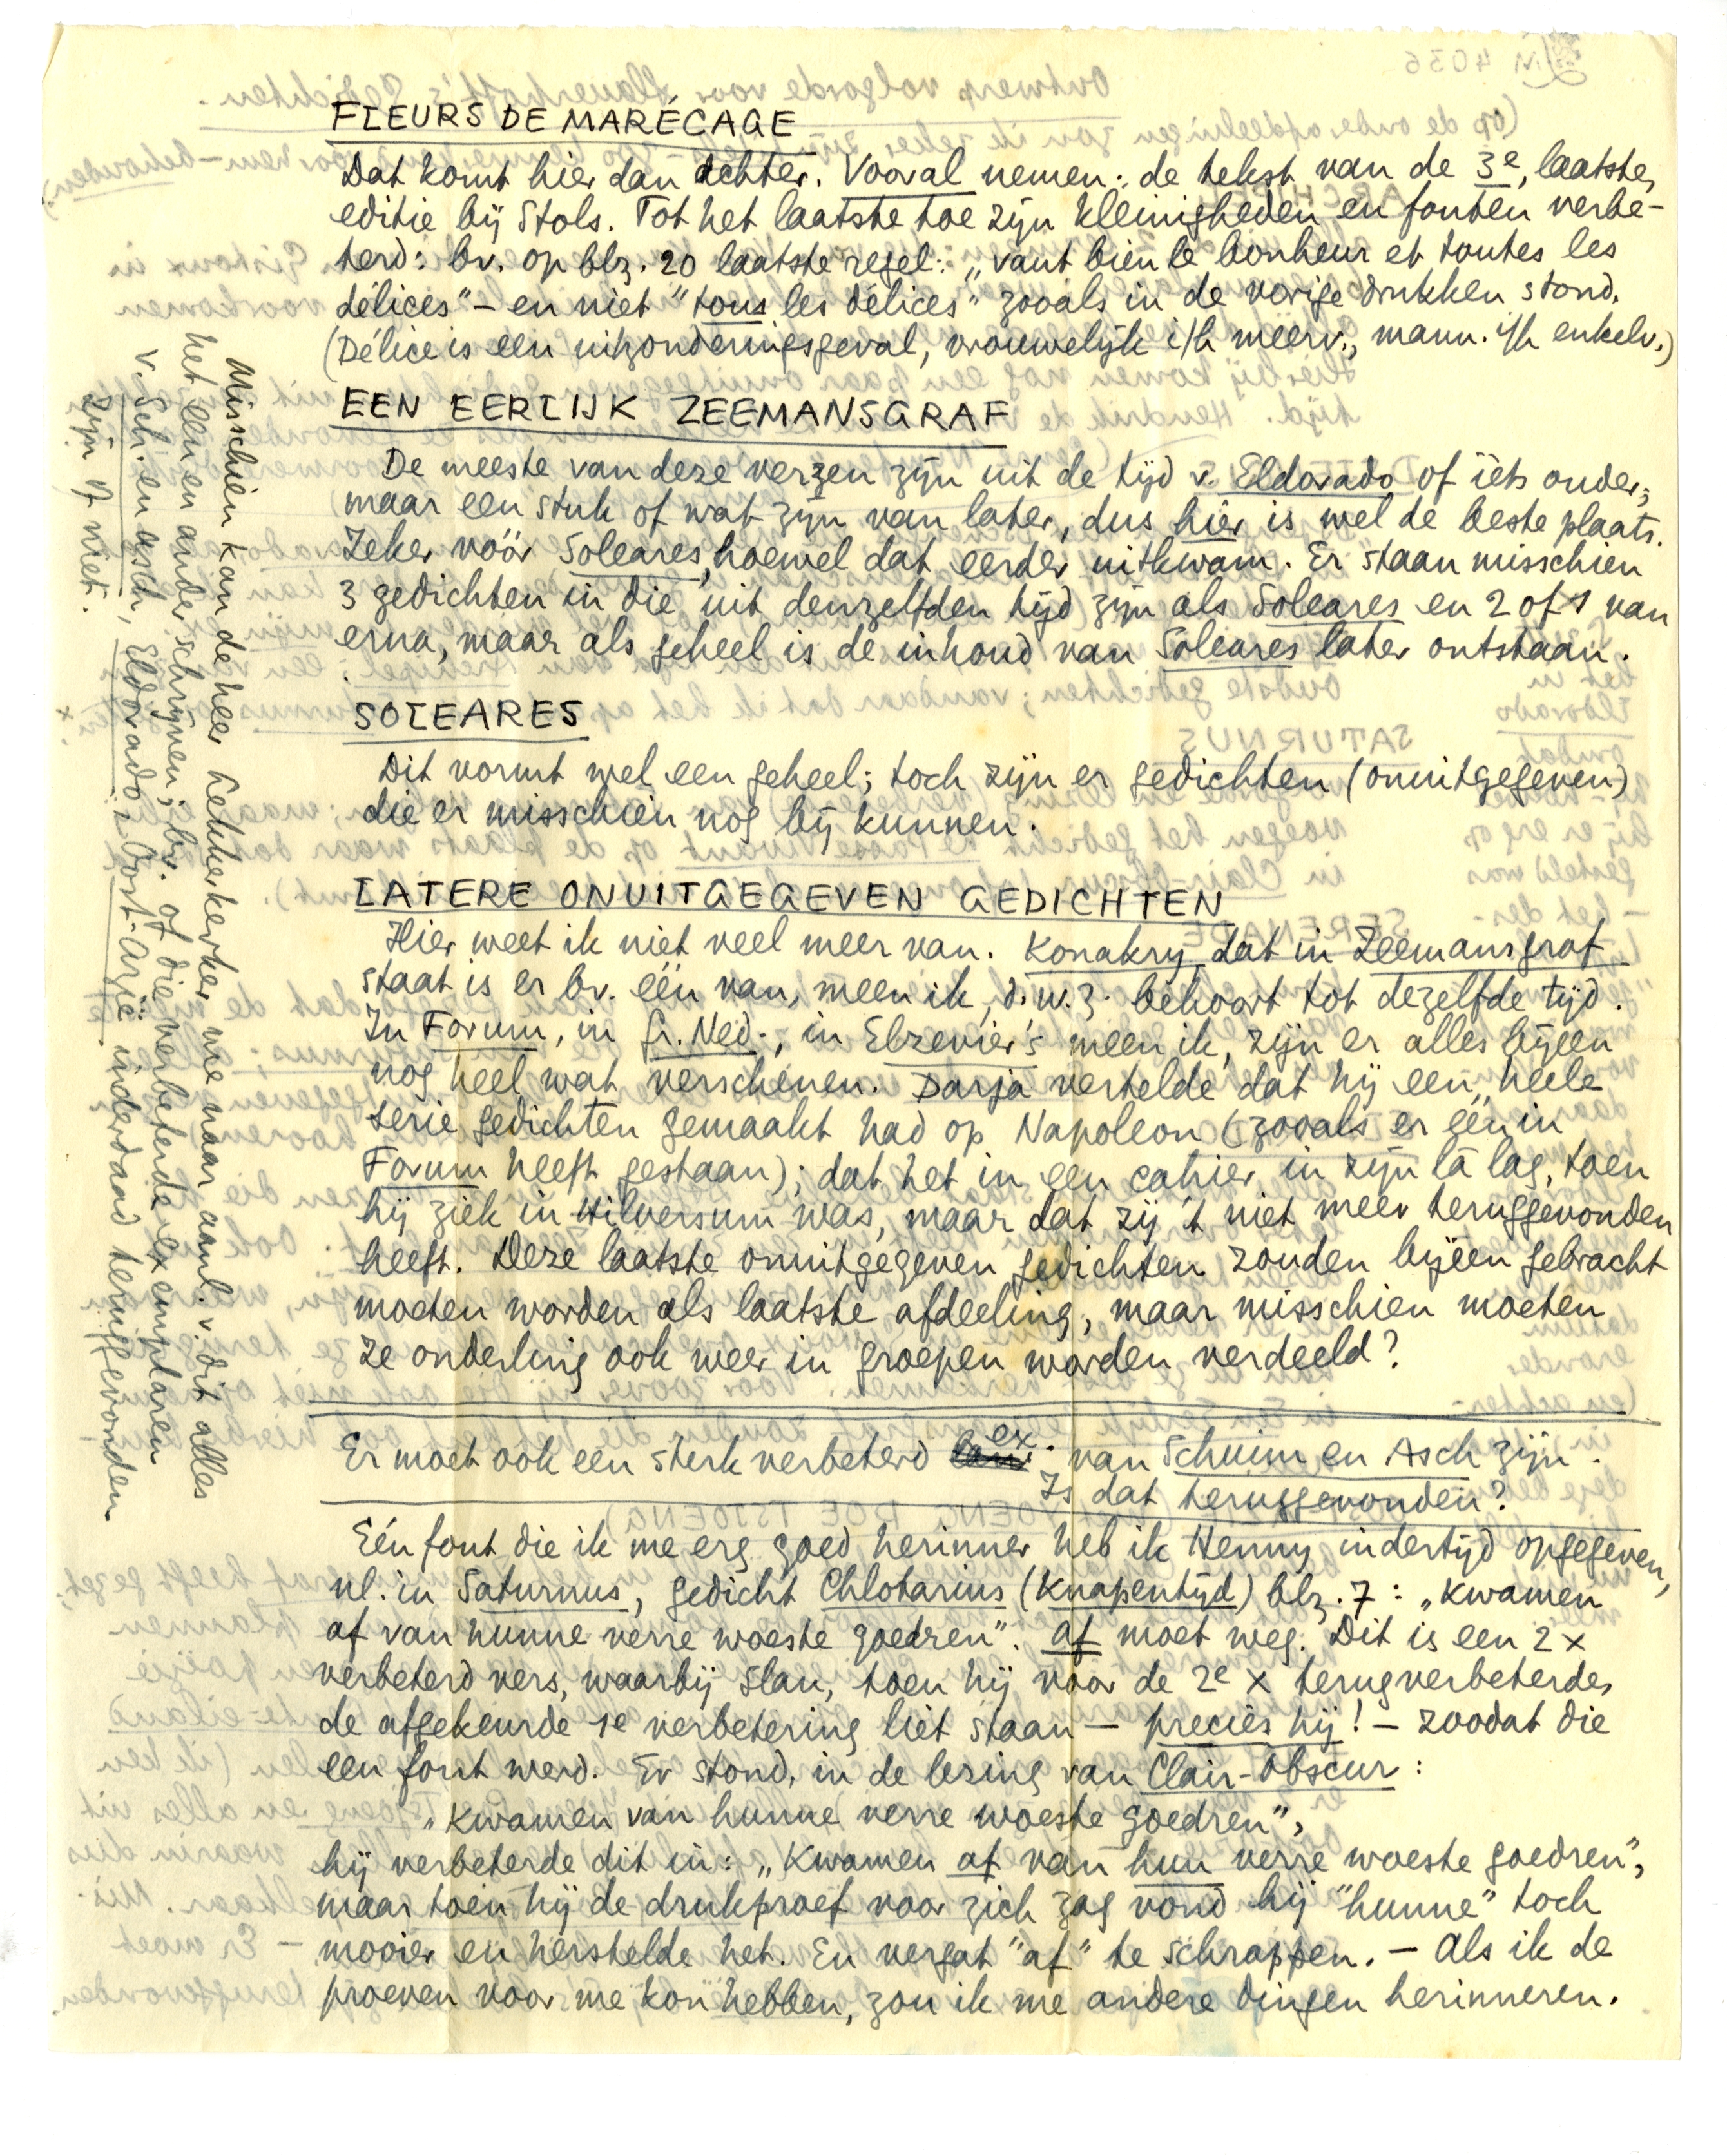 FLEURS DE MARÉCAGE
Dat komt hier dan achter. Vooral nemen: de tekst van de 3e, laatste,
editie bij Stols. Tot het laatste toe zijn kleinigheden en fouten verbe-
terd: bv. op blz. 20 laatste regel: „vaut bien le bonheur et toutes les
délices" – en niet "tous les délices" zooals in de vorige drukken stond.
(Délice is een uitzonderingsgeval, vrouwelijk i/h meerv., mann. i/h enkelv.)
EEN EERLIJK ZEEMANSGRAF
De meeste van deze verzen zijn uit de tijd v. Eldorado of iets ouder;
maar een stuk of wat zijn van later, dus hier is wel de beste plaats.
Zeker vóór Soleares, hoewel dat eerder uitkwam. Er staan misschien
3 gedichten in die uit denzelfden tijd zijn als Soleares en 2 of 1 van
erna, maar als geheel is de inhoud van Soleares later ontstaan.
SOLEARES
Dit vormt wel een geheel; toch zijn er gedichten (onuitgegeven)
die er misschien nog bij kunnen.
LATERE ONUITGEGEVEN GEDICHTEN
Hier weet ik niet veel meer van. Konakry dat in Zeemansgraf
staat is er bv. één van, meen ik, d.w.z. behoort tot dezelfde tijd.
In Forum, in Gr. Ned., in Elzevier's meen ik, zijn er alles bijeen
nog heel wat verschenen. Darja vertelde dat hij een heele
serie gedichten gemaakt had op Napoleon (zooals er één in
Forum heeft gestaan); dat het in een cahier in zijn la lag, toen
hij ziek in Hilversum was, maar dat zij 't niet meer teruggevonden
heeft. Deze laatste onuitgegeven gedichten zouden bijeen gebracht
moeten worden als laatste afdeeling, maar misschien moeten
ze onderling ook weer in groepen worden verdeeld?
Er moet ook een sterk verbeterd ex. van Schuim en Asch zijn.
Is dat teruggevonden?
Eén fout die ik me erg goed herinner heb ik Henny indertijd opgegeven,
nl. in Saturnus, gedicht Chlotarius (Knapentijd) blz. 7: „Kwamen
af van hunne verre woeste goedren". af moet weg. Dit is een 2 x
verbeterd vers, waarbij Slau, toen hij voor de 2e x terugverbeterde,
de afgekeurde 1e verbetering liet staan – precies hij! – zoodat die
een fout werd. Er stond, in de lezing van Clair-Obscur:
„Kwamen van hunne verre woeste goedren",
hij verbeterde dit in: „Kwamen af van hun verre woeste goedren",
maar toen hij de drukproef voor zich zag vond hij "hunne" toch
mooier en herstelde het. En vergat "af" te schrappen. – Als ik de
proeven voor me kon hebben, zou ik me andere dingen herinneren.
Misschien kan de heer Lekkerkerker me naar aanl. v. dit alles
het een en ander schrijven; bv. of die verbeterde exemplaren
v. Sch. en asch, Eldorado, Oost-Azië inderdaad teruggevonden
zijn of niet.